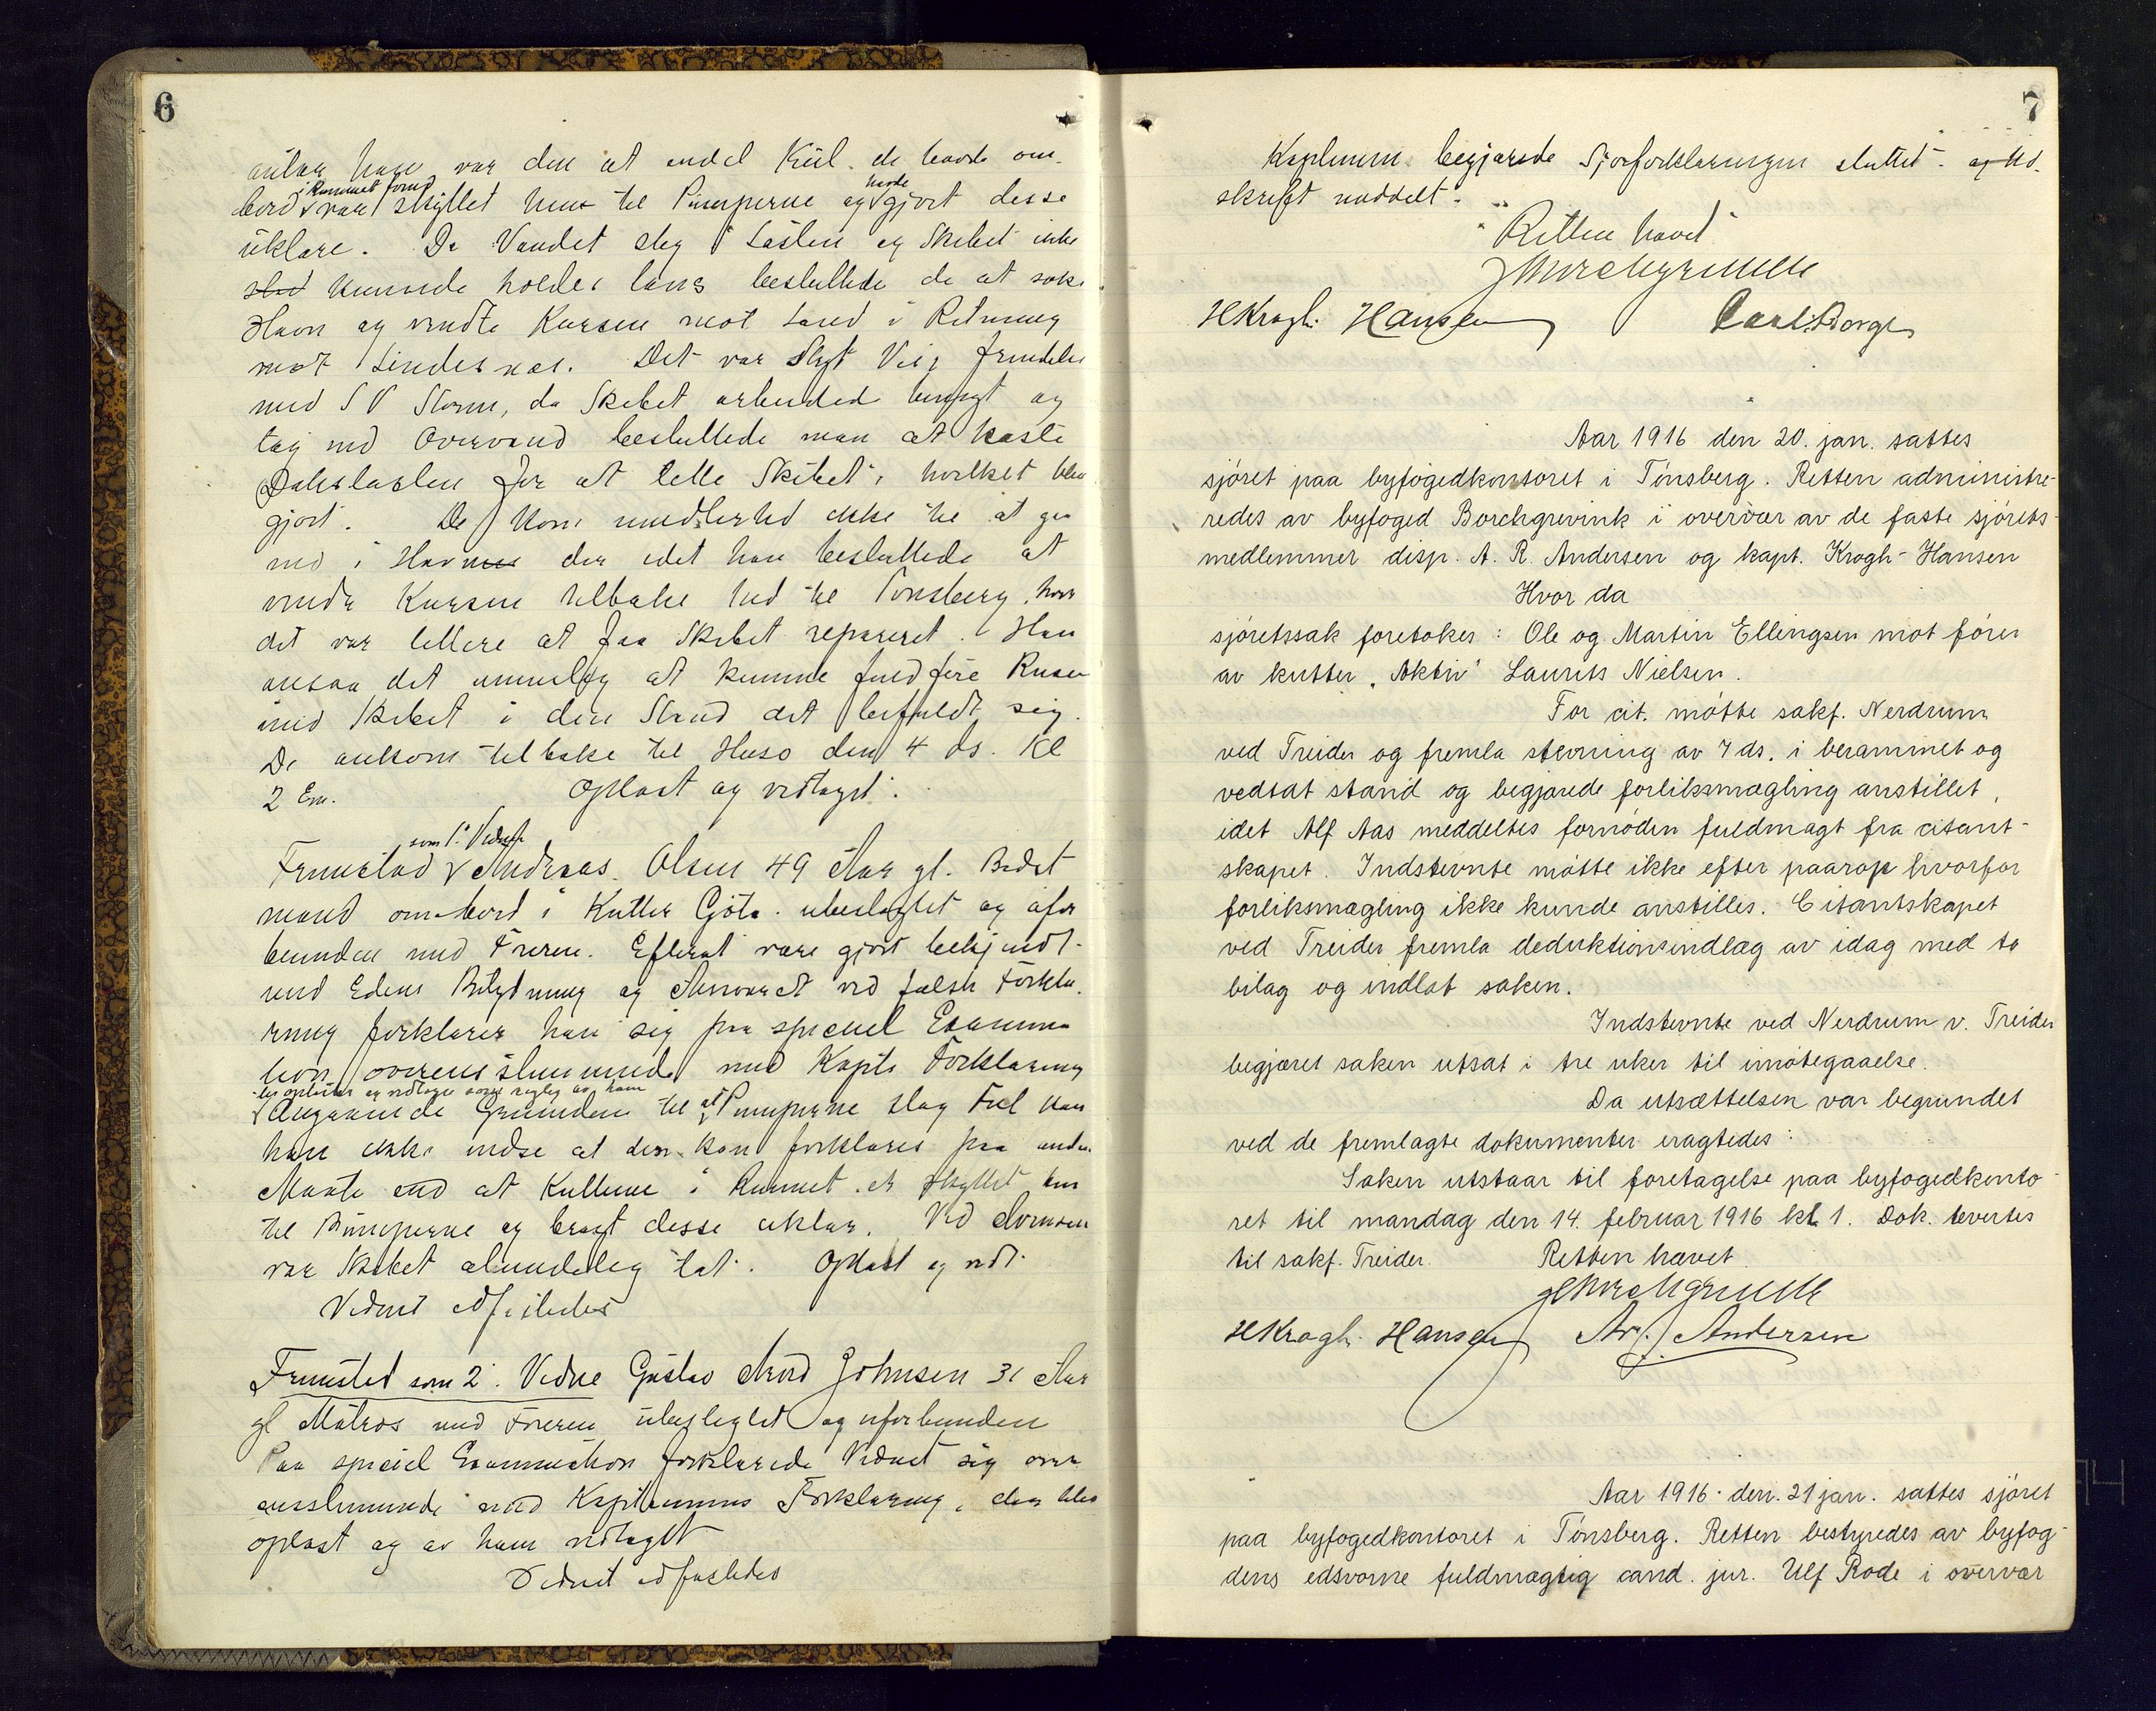 6
antar han var den at endel Kul de havde om-
bord i Rummet som var skyllet hen til Pumperne og havde gjort disse
uklare. Da Vandet steg i Lasten og Skibet ikke
kunde holdes læns besluttede de at søke
Havn og vendte Kursen mot Land i Retning
mot Lindesnæs. Det var Stygt Veir fremdeles
med S V Storm, da Skibet arbeidet tungt og
tog ind Overvand besluttede man at kaste
Dækslasten for at lette Skibet, hvilket blev
gjort. De kom imidlertid ikke til at gaa
ind i Havn der idet han besluttede at
vende Kursen tilbake ind til Tønsberg, hvor
det var lettere at faa Skibet reparert. Han
ansaa det umulig at kunne fuldføre Reisen
med Skibet i den Stand det befandt sig.
De ankom tilbake til Husø den 4 ds. Kl
2 Em. Oplæst og vedtaget.
Fremstod som 1. Vidne Andreas Olsen 49 Aar gl. Bedst
mand ombord i Kutter Göta. ubeslegtet og ufor
bunden med Føreren. Efterat være gjort bekjendt
med Edens Betydning og Ansvaret ved falsk Forkla-
ring forklarer han sig paa speciel Examina
tion overensstemmende med Kapts Forklaring
der oplæstes og vedtoges som rigtig av ham
Angaaende Grunden til at Pumperne slog Feil kan
han ikke indse at den kan forklares paa anden
Maate end at Kullene i Rummet er skyllet hen
til Pumperne og bragt disse uklar. Ved Avreisen
var Skibet almindelig tæt. Oplæst og vedt.
Vidnet affratrædes
Fremsted som 2. Vidne Gustav Arvid Johnsen 31 Aar
gl Matros med Føreren ubeslegtet og uforbunden
Paa speciel Examination forklarede Vidnet sig over
ensstemmende med Kapteinens Forklaring, der blev
oplæst og av ham vedtaget
Vidnet
7
Kapteinen begjærede Sjøforklaringen sluttet og Ud-
skrift meddelt.
Retten hævet
JBorchgrevink
HKrogh-Hansen Carl Borge
Aar 1916 den 20. jan. sattes
sjöret paa byfogedkontoret i Tönsberg. Retten administre-
redes av byfoged Borchgrevink i overvær av de faste sjörets-
medlemmer disp. A. R. Andersen og kapt. Krogh-Hansen
Hvor da
sjöretssak foretokes: Ole og Martin Ellingsen mot förer
av kutter "Aktiv" Laurits Nielsen.
For cit. mötte sakf. Nerdrum
ved Treider og fremla stevning av 7 ds. i berammet og
vedtat stand og begjærede forliksmægling anstillet,
idet Alf Aas meddeltes fornöden fuldmagt fra citant-
skapet. Indstevnte mötte ikke efter paarop hvorfor
forliksmægling ikke kunde anstilles. Citantskapet
ved Treider fremla deduktionsindlæg av idag med to
bilag og indlot saken.
Indstevnte ved Nerdrum v. Treider
begjæret saken utsat i tre uker til imötegaaelse.
Da utsættelsen var begrundet
ved de fremlagte dokumenter eragtedes:
Saken utstaar til foretagelse paa byfogedkonto-
ret til mandag den 14. februar 1916 kl. 1. Dok. levertes
til sakf. Treider. Retten hævet
JBorchgrevink
HKrogh-Hansen Andersen
Aar 1916 den 21 jan. sattes sjöret
paa byfogedkontoret i Tönsberg. Retten bestyredes av byfog-
dens edsvorne fuldmægtig cand. jur. Ulf Rode i overvær